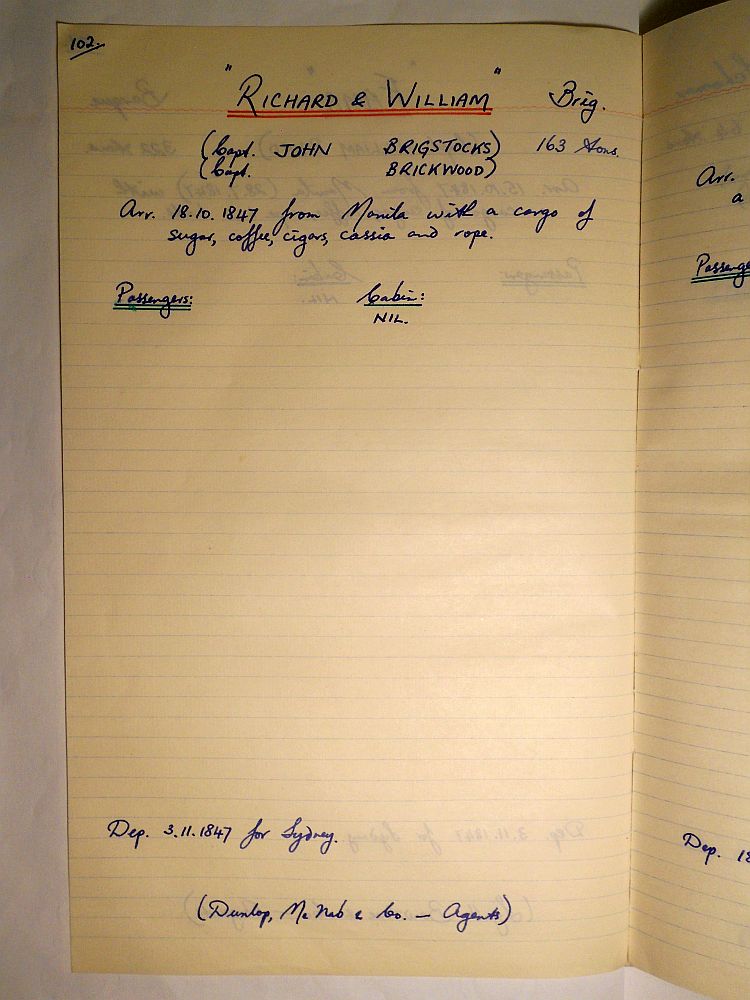 102.
"RICHARD & WILLIAM" Brig.
(Capt. JOHN BRIGSTOCKS) 163 tons.
(Capt. BRICKWOOD)
Arr. 18.10.1847 from Manila with a cargo of
sugar, coffee, cigars, cassia and rope.
Passengers: Cabin:
NIL.
Dep. 3.11.1847 for Sydney.
(Dunlop, McNab & Co. — Agents)
Arr.
a
Passenge
Dep. 18